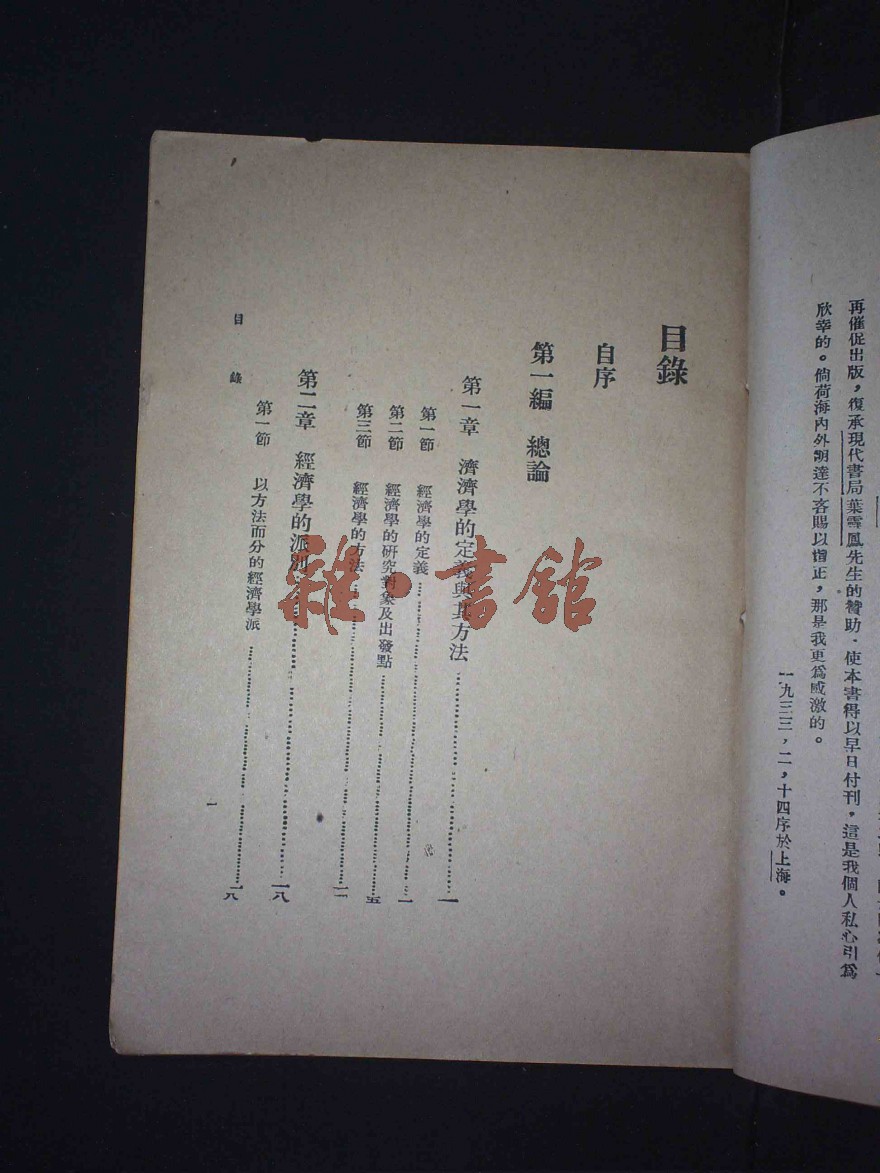 再催促出版，復承現代書局葉雪鳳先生的贊助．使本書得以早日付刊，這是我個人私心引為
欣幸的。倘荷海內外明達不吝賜以指正，那是我更為感激的。
一九三三，二，十四序於上海。
目錄
自序
第一編　總論
第一章　濟濟學的定義與其方法……………一
第一節　經濟學的定義……………一
第二節　經濟學的研究對象及出發點……………五
第三節　經濟學的方法……………一二
第二章　經濟學的派別……………一八
第一節　以方法而分的經濟學派……………一八
目　錄
一
雜·書館